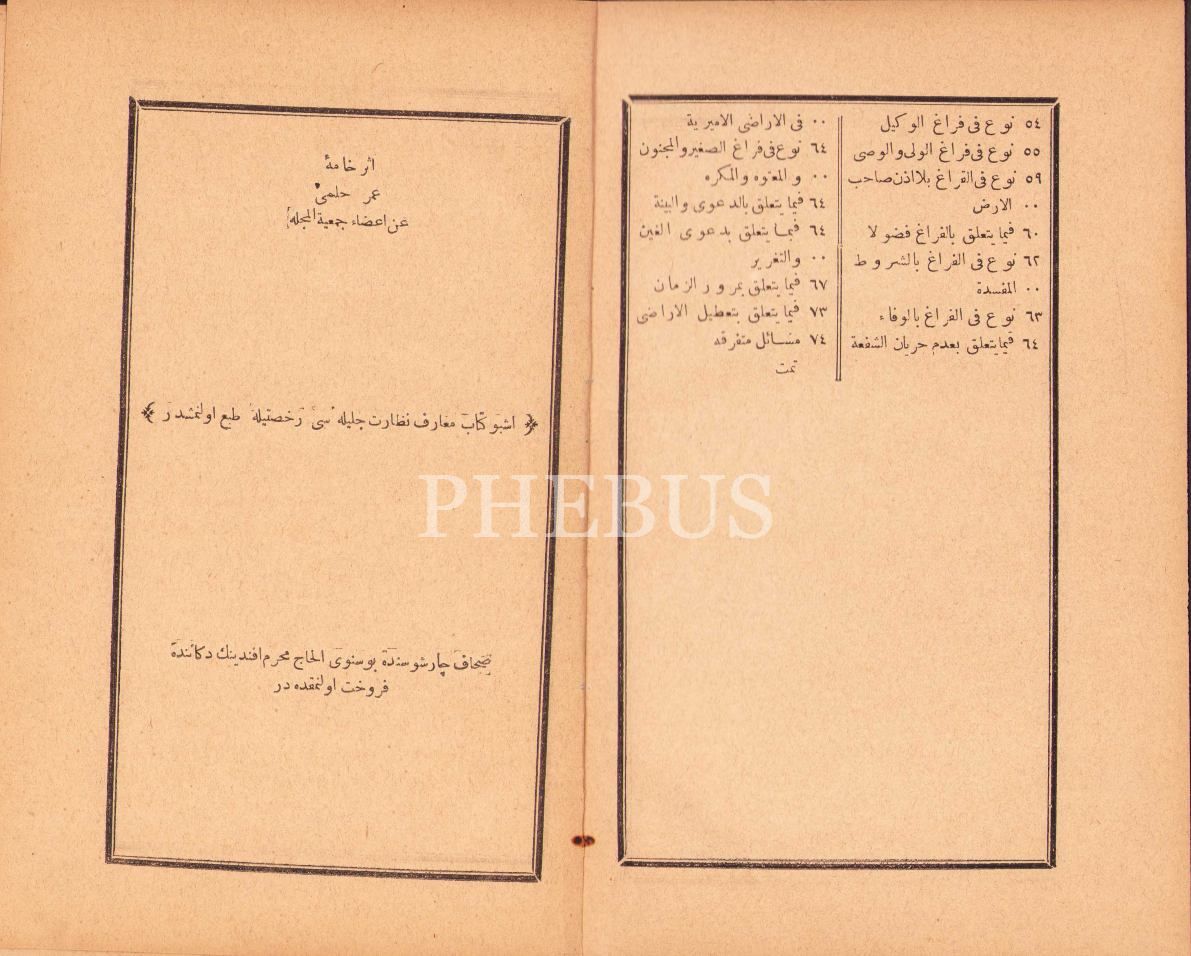 ٥٤ نوع فى فراغ الوكيل
٥٥ نوع فى فراغ الولى والوصى
٥٩ نوع فى الفراغ بلا اذن صاحب
٠٠ الارض
٦٠ فيما يتعلق بالفراغ فضولا
٦٢ نوع فى الفراغ بالشروط
٠٠ المفسدة
٦٣ نوع فى الفراغ بالوفاء
٦٤ فيما يتعلق بعدم جريان الشفعة
٠٠ فى الاراضى الاميرية
٦٤ نوع فى فراغ الصغير والمجنون
٠٠ والمعتوه والمكره
٦٤ فيما يتعلق بالدعوى والبينة
٦٤ فيما يتعلق بدعوى الغبن
٠٠ والتغرير
٦٧ فيما يتعلق بمرور الزمان
٧٣ فيما يتعلق بتعطيل الاراضى
٧٤ مسائل متفرقه
تمت
اثر خامۀ
عمر حلمى
عن اعضاء جمعية المجله
اشبو كتاب معارف نظارت جليله سى رخصتيله طبع اولنمشدر
صحاف چارشوسنده بوسنوى الحاج محرم افندينك دكاننده
فروخت اولنمقده در
PHEBUS